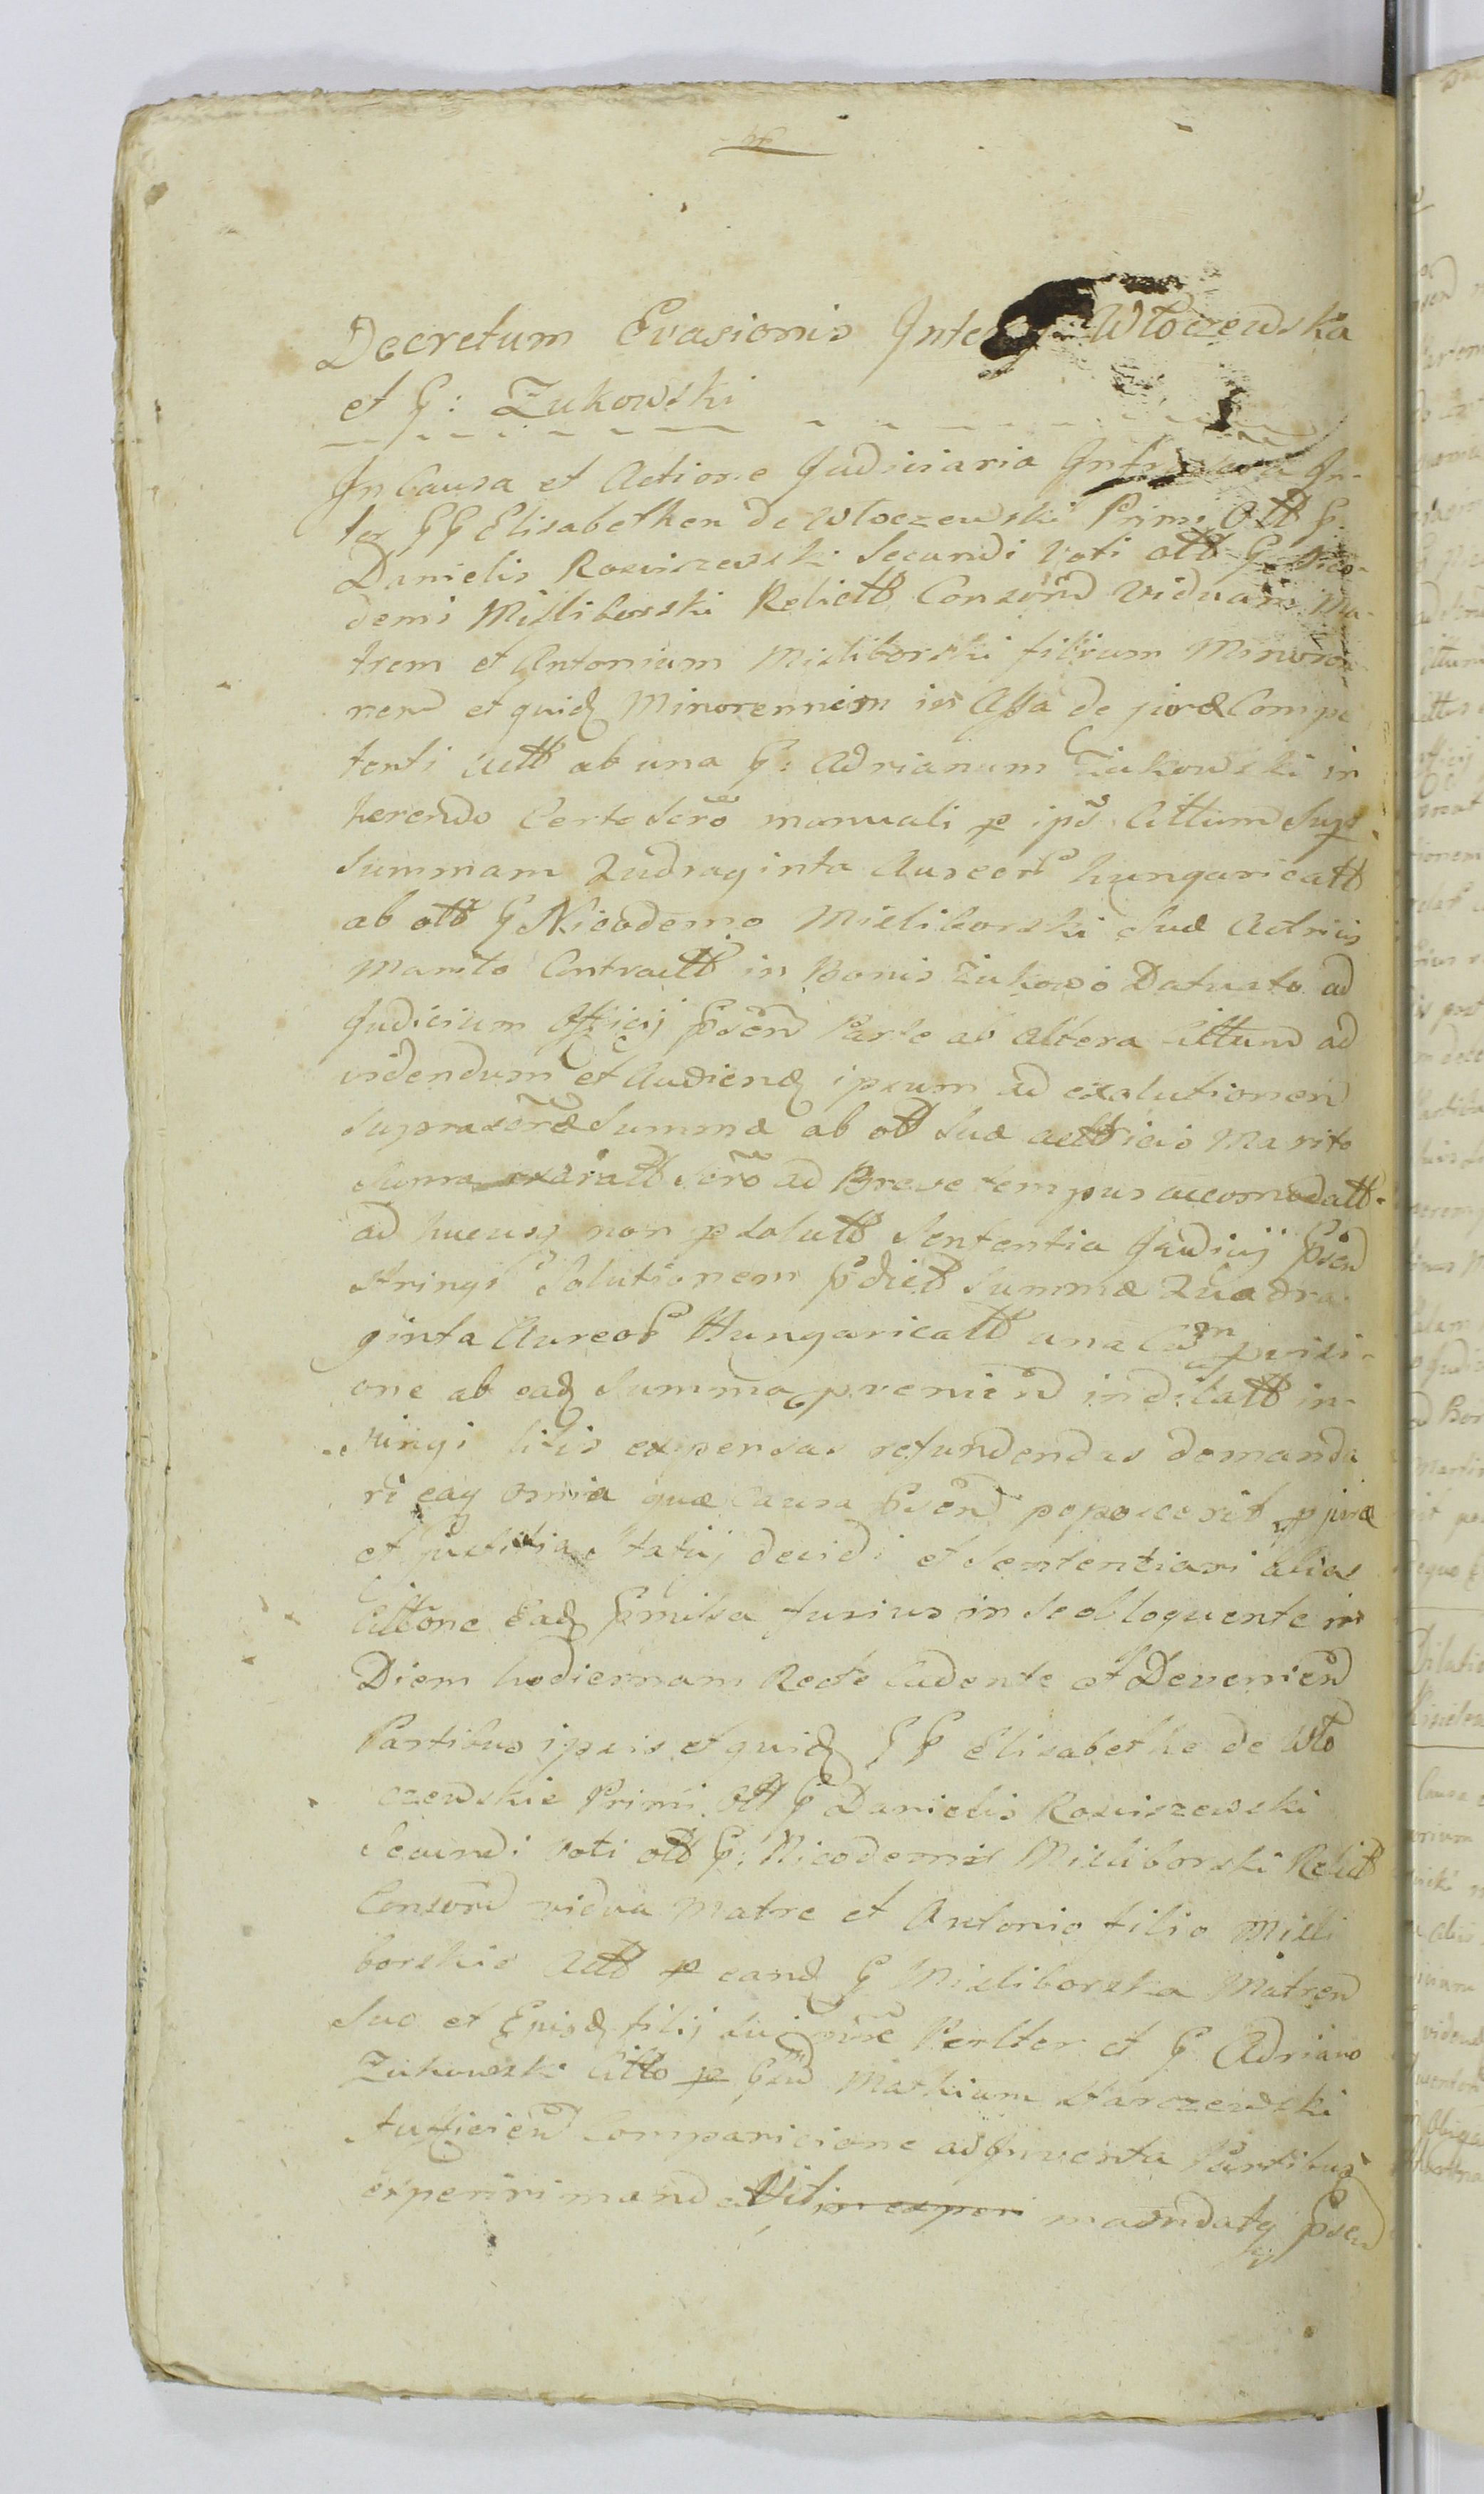 Decretum Evasionis Inter G: Włoczewska
et G: Zukowski
In Causa et Actione Judiciaria In-
ter GG Elisabethen de Włoczewski Primi Ott G.
Danielis Rosciszewski Secundi Voti ott G Nico-
demi Misliborski Relictt Consortd Viduam Ma-
trem et Antonium Misliborski filium Minoren-
nend et quidq Minorennem in Assa de jure Compe
tenti Actt ab una G: Adrianum Zukowski in
herendo Certo Scro manuali p ipsu Cittum Supr
Summam Qudraginta Aureor hungaricatt
ab ott G Nicodemo Misliborski Suæ Actricis
Marito Contractt in Bonis Zukowo Datusto ad
Judicium Officij Psend Parte ab altera Cittumd ad
videndum et Audiend ipsum ad exolutionem
Suprascræ Summæ ab ott Suæ acttricis Marito
Supra exaratt Scro ad Breve tempus accomodatt
ad hucusq non psolutt Sententia Judicij Psend
stringi Solutionem Pdictt Summæ Quadra
ginta Aureor Hungaricatt una Cum provisi-
one ab eadq Summa proveniend indilatt in-
iungi litis expensas refundendas demanda
ri eaq omnia quæ Causa Psend poposcerit p jura
et justitia Statuj decidi et Sententiari alias
Cittone Eadq Pmissa fusius in se obloquente in
Diem hodiernam Recte Cadente et Deveniend
Partibus ipsis et quidq GG Elisabethe de Wło
czewskie Primi Ott G Danielis Rosciszewski
Secundi voti ott G: Nicodemi Misliborski Relictt
Consortd vidua Matre et Antonio filio Misli
borskie Actt p eandq G Misliborska Matrend
Suo et Ejusdq filij sui nne Perlter et G Adriano
Zukowski Citto p Gsud Mathium Harczewski
sufficiend Comparicione adinventa Partibus
experiri mandavit mandatq Psend